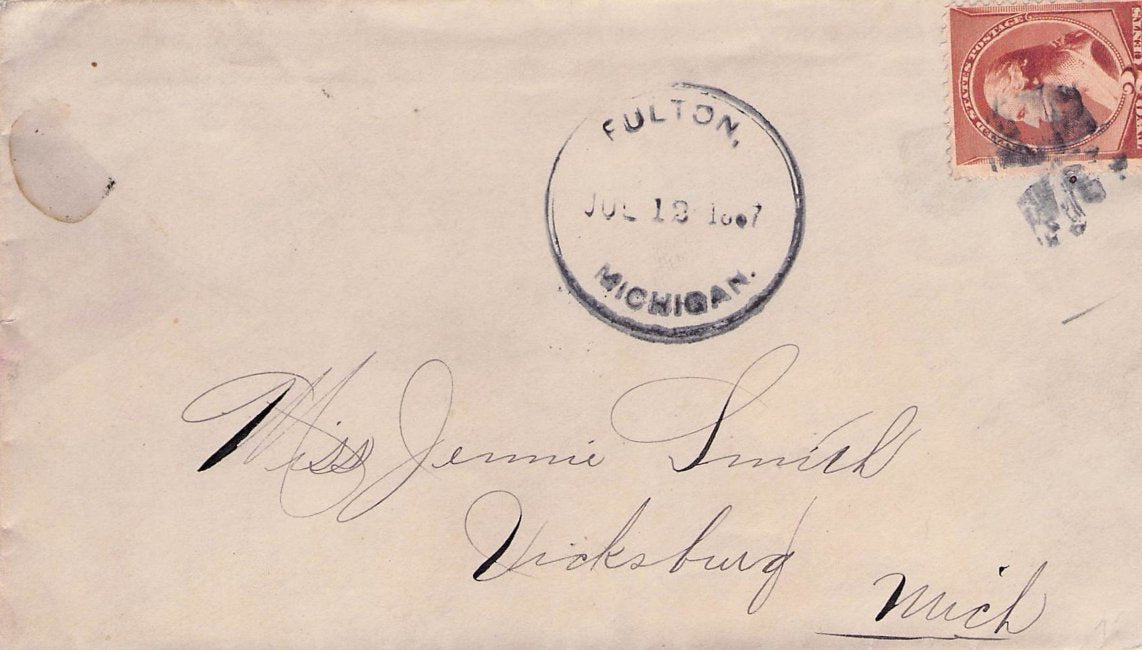 STATES POSTAGE
FULTON,
JUL
MICHIGAN.
Miss Jennie Smith
Vicksburg
Mich